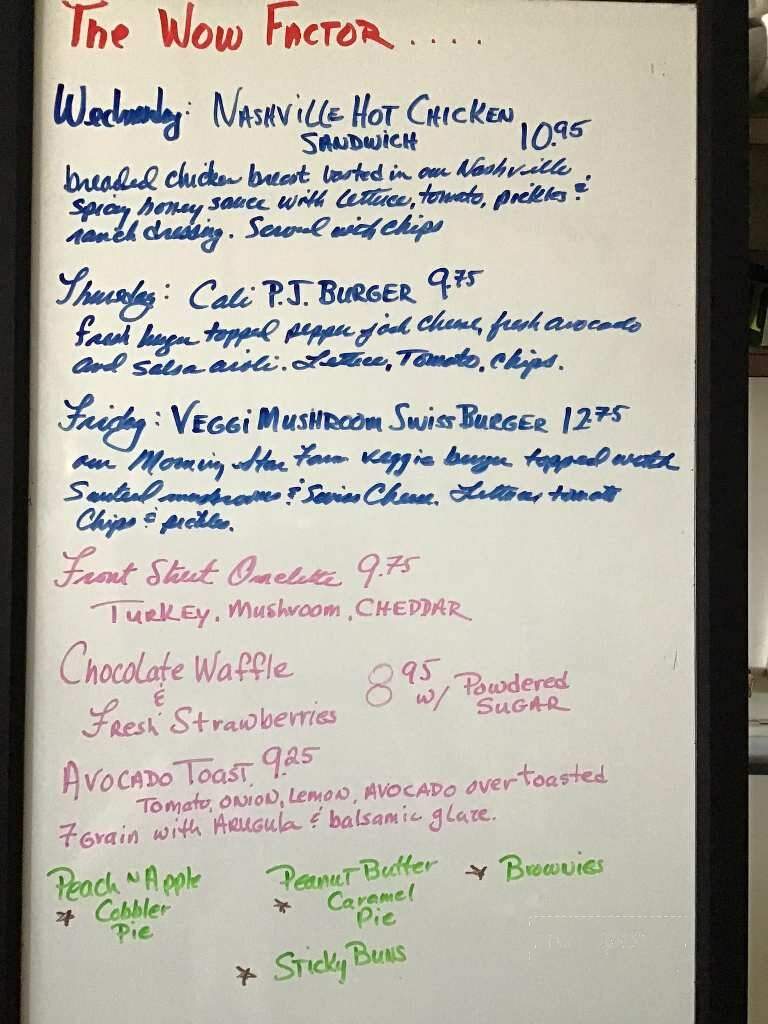 The Wow Factor....
Wednesday: Nashville Hot Chicken
Sandwich 10.95
breaded chicken breast basted in our Nashville
spicy honey sauce with lettuce, tomato, pickles &
ranch dressing. Served with chips
Thursday: Cali P.J. Burger 9.75
fresh burger topped pepper jack cheese, fresh avocado
and salsa aioli. Lettuce, Tomato, Chips.
Friday: Veggi Mushroom Swiss Burger 12.75
our Morning Star Farm veggie burger topped with
Sauteed mushrooms & Swiss Cheese. Lettuce tomato
Chips & pickles.
Front Street Omelette 9.75
Turkey, Mushroom, Cheddar
Chocolate Waffle
&
Fresh Strawberries
8.95 w/ Powdered
Sugar
Avocado Toast 9.25
Tomato, onion, lemon, avocado over toasted
7 grain with Arugula & balsamic glaze.
Peach ~ Apple
* Cobbler
Pie
Peanut Butter
* Caramel
Pie
* Brownies
* Sticky Buns